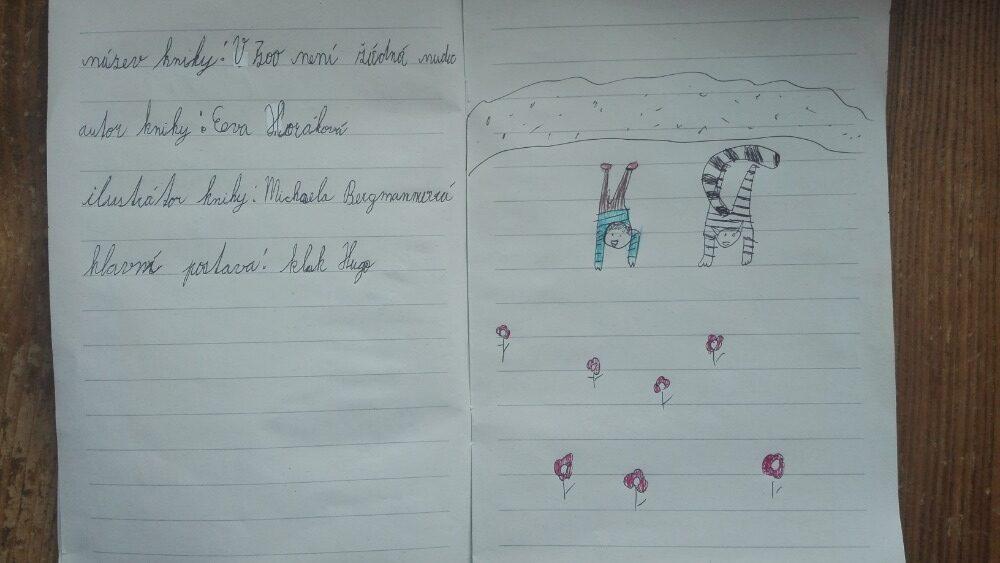 název kniky: V Zoo není žádná nuda
autor kniky: Eeva Horáková
ilustrátor kniky: Michaela Bergmannová
hlavní postava: kluk Hugo